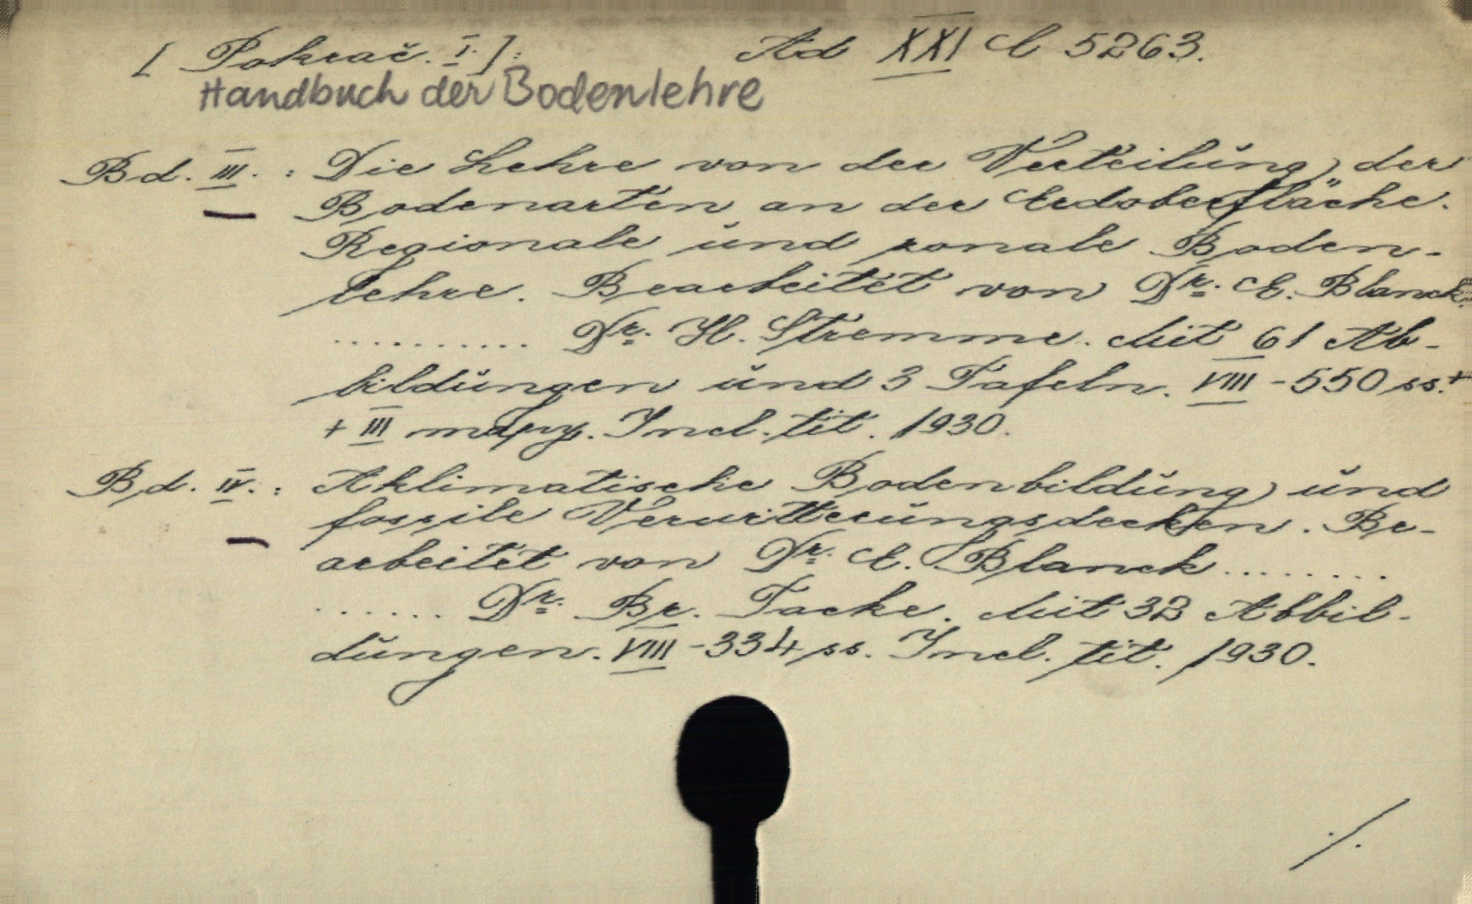 [ Pokrač. I. ]: Ad XXI C 5263.
Handbuch der Bodenlehre
Bd. III. : Die Lehre von der Verteilung der
Bodenarten an der Erdoberfläche.
Regionale und zonale Boden-
lehre. Bearbeitet von Dr. E. Blanck
........... Dr. H. Stremme. Mit 61 Ab-
bildungen und 3 Tafeln. VIII - 550 ss. +
+ III mapy. Incl. tit. 1930.
Bd. IV. : Aklimatische Bodenbildung und
fossile Verwitterungsdecken. Be-
arbeitet von Dr. E. Blanck ........
...... Dr. Br. Tacke. Mit 32 Abbil-
dungen. VIII - 334 ss. Incl. tit. 1930.
./.